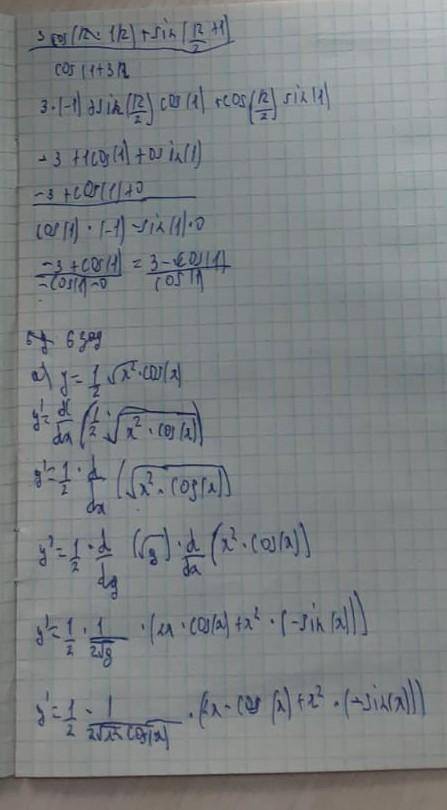 3 cos(π · 1π) + sin(π/2 + 1)
cos(1+3π
3·(-1) + sin(π/2) cos(1) + cos(π/2) sin(1)
-3 + 1cos(1) + 0 sin(1)
-3 + cos(1) + 0
cos(1) · (-1) - sin(1) · 0
-3 + cos(1) / -cos(1) - 0 = 3 - cos(1) / cos(1)
6 зад
a) y = 1/2 √x² · cos(x)
y' = d/dx (1/2 · √x² · cos(x))
y' = 1/2 · d/dx (√x² · cos(x))
y' = 1/2 · d/dg (√g) · d/dx (x² · cos(x))
y' = 1/2 · 1/2√g · (2x · cos(x) + x² · (-sin(x)))
y' = 1/2 · 1/2√x² cos(x) · (2x · cos(x) + x² · (-sin(x)))